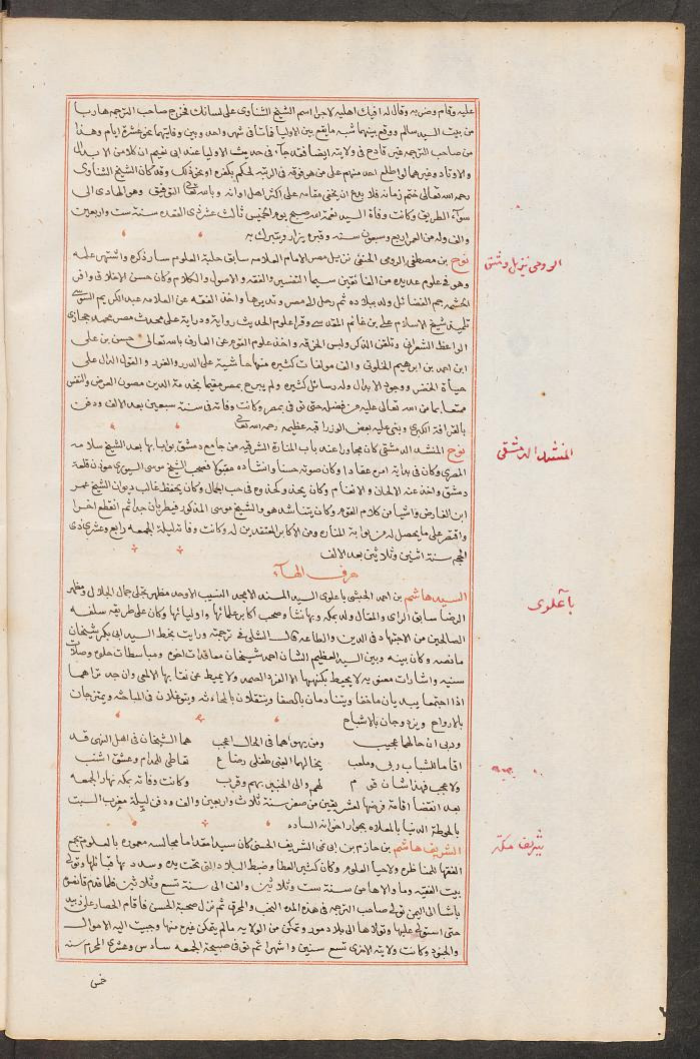 عليه وقام وضربه وقال له افيك اهلية لاجرا اسم الشيخ الشناوى على لسانك فخرج صاحب الترجمه هاربا
من بيت السيد سالم ووقع بينهما شبه مايقع بين الاوليا فماتا فى شهر واحد وبين وفاتيهما نحو عشرة ايام وهذا
من صاحب الترجمه غير قادح فى ولايته ايضا فقد جآء فى حديث الاوليا عند ابى نعيم ان كلا من الابدال
والاوتاد وغيرهما لو اطلع احد منهم على من هو فوقه فى الرتبه لحكم بكفره او نحو ذلك وقد كان الشيخ الشناوى
رحمه الله تعالى ختم زمانه فلا بدع ان يخفى مقامه على اكثر اهل اوانه وبالله تعالى التوفيق وهو الهادى الى
سوآء الطريق وكانت وفاة السيد نعمة الله صبح يوم الخميس ثالث عشر ذى القعده سنة ست واربعين
والف وله من العمر اربع وسبعون سنه وقبره يزار ويتبرك به
نوح بن مصطفى الرومى الحنفى نزيل مصر الامام العلامه سابق حلبة العلوم سار ذكره واشتهر علمه
وهو فى علوم عديده من الفائقين سيما التفسير والفقه والاصول والكلام وكان حسن الاخلاق وافر
الحشمه جم الفضائل ولد ببلاده ثم رحل الى مصر وتديرها واخذ الفقه عن العلامه عبد الكريم السوسى
تلميذ شيخ الاسلام على بن غانم المقدسى وقرا علوم الحديث رواية ودراية على محدث مصر محمد حجازى
الواعظ الشعرانى وتلقن الذكر ولبس الخرقه واخذ علوم القوم عن العارف بالله تعالى حسن بن على
ابن احمد بن ابراهيم الخلوتى والف مولفات كثيره منها حاشية على الدرر والغرر والقول الدال على
حياة الخضر ووجود الابدال وله رسائل كثيره ولم يبرح بمصر مقيما بخدمة الدين مصون العرض والنفس
متمتعا بما من الله تعالى عليه من فضله حتى توفى بمصر وكانت وفاته فى سنة سبعين بعد الالف ودفن
بالقرافة الكبرى وبنى عليه بعض الوزرا قبه عظيمه رحمه الله تعالى
نوح المنشد الدمشقى كان مجاورا عند باب المنارة الشرقيه من جامع دمشق بن بابها بعد الشيخ سلامه
المصرى وكان فى بداية امره عقادا وكان صوته حسنا وانشاده مقبولا فصحب الشيخ موسى السيورى موذن قلعة
دمشق واخذ عنه الالحان والانغام وكان يحذو حذوه فى حب الجمال وكان يحفظ غالب ديوان الشيخ عمر
ابن الفارض واشيا من كلام القوم وكان يتناشد هو والشيخ موسى المذكور فيطربان جدا ثم انقطع اخرا
واقتصر على ما يحصل له من بوابة المناره ومن الاكابر المعتقدين له وكانت وفاته ليلة الجمعه رابع وعشرى ذى
الحجه سنة اثنين وثلاثين بعد الالف
حرف الهآء
السيد هاشم بن احمد الحبشى باعلوى السيد السند الامجد النسيب الاوحد مظهر تجلى جمال الجلال ومظهر
الرضا سابق الراى والمقال ولد بمكه وبها نشا وصحب اكابر علمائها واوليائها وكان على طريقه سلفه
الصالحين من الاجتهاد فى الدين والطاعه قالـ الشلى فى ترجمته ورايت بخط السيد ابى بكر شيخان
مانصه وكان بينه وبين السيد العظيم الشان احمد شيخان معاقدات اخوه ومباسطات حلوه وصلات
سنيه واشارات معنويه لا يحيط بكنهها الا الفرد الصمد ولا يميط عن نقابها الالمعى وان جد تراهما
اذا اجتمعا يبديان ماخفا ويتنادمان بالصفا ويتنقلان بالمحادثه ويتوغلان فى المباحثه ويمتزجان
بالارواح ويزدوجان بالاشباح
وربى ان حالهما عجيب ومن يهواهما فى الحال اعجب هما الشيخان فى اهل النهى قد
اقاما للشباب ربى وملعب يخالهما الغبى طفلى رضاع تعاطى للمدام وعشق اشنب
ولا عجب فهذا شان قوم لهم والى الحبيب بهم وقرب وكانت وفاته بمكه نهار الجمعه
بعد انقضا اقامة فرضها لعشر بقين من صفر سنة ثلاث واربعين والف ودفن ليلة مغرب السبت
بالحوطة الدنيا بالمعلاه بجوار اخوانه الساده
الشريف هاشم بن حازم بن ابى نمى الشريف الحسنى كان سيدا مقداما مجالسه معموره بالعلوم تجمع
الفقها للمناظره ولاحيا العلوم وكان كثير العطا وضبط البلاد التى تحت يده وسدد بها قبائلها وتولى
بيت الفقيه وما والاها من سنة ست وثلاثين والف الى سنة تسع وثلاثين فلما قدم قانصوه
باشا الى اليمن تولى صاحب الترجمه فى هذه المده النخب والمخرق ثم نزل صحبة الحسن فاقام الحصار على زبيد
حتى استولى عليها وتولاها الى بلاد مور وتمكن من الولايه مالم يتمكن غيره منها وجبيت اليه الاموال
والجنود وكانت ولايته الاخرى تسع سنين واشهرا ثم توفى فى صبيحة الجمعه سادس وعشرى المحرم سنه
خمس
الرومى نزيل دمشق
المنشد الدمشقى
باعلوى
شريف مكه